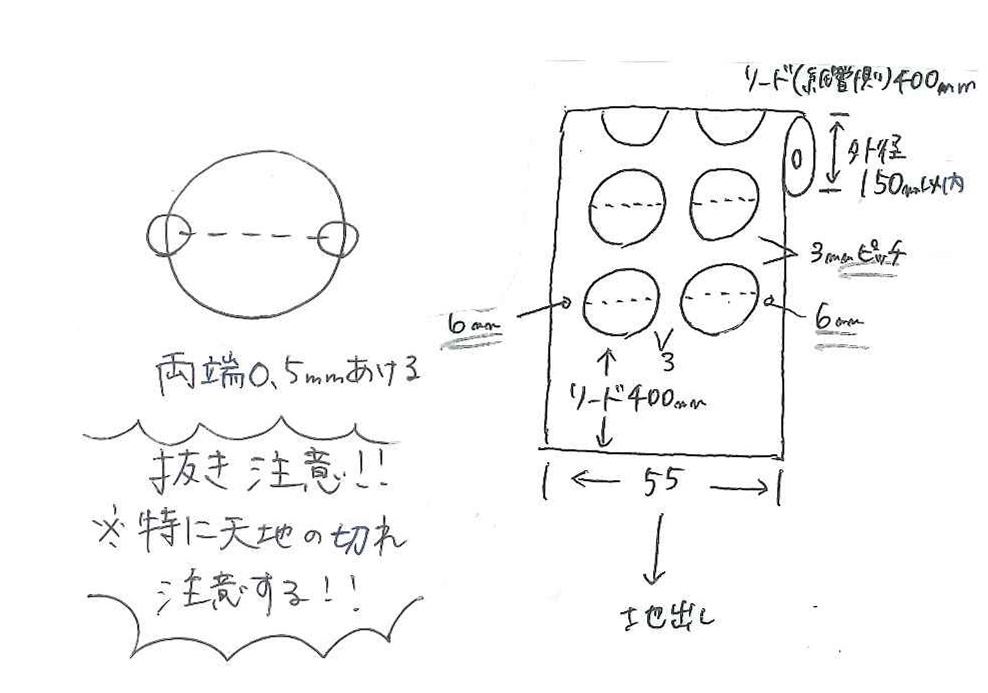 リード(紙管側)400mm
外径
150mm以内
3mmピッチ
6mm
6mm
3
リード400mm
55
地出し
両端0.5mmあける
抜き注意!!
※特に天地の切れ
注意する!!